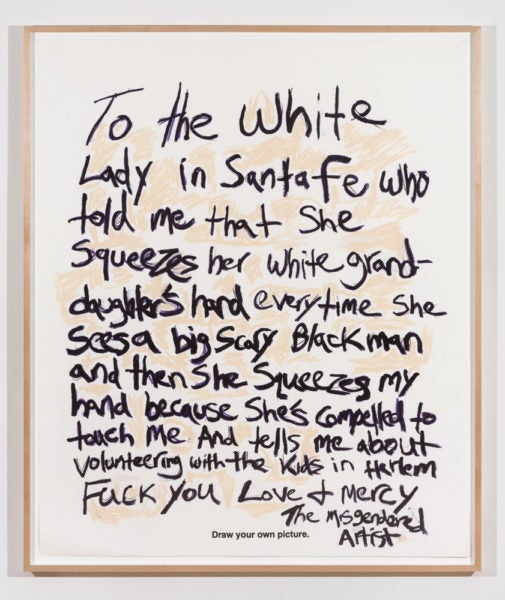 To the White
Lady in Santa Fe who
told me that She
Squeezes her white grand-
daughter's hand everytime She
Sees a big Scary Black man
and then She Squeezes my
hand because She's compelled to
touch Me And tells me about
volunteering with the kids in Harlem
Fuck you Love + Mercy
The Misgendered
Artist
Draw your own picture.